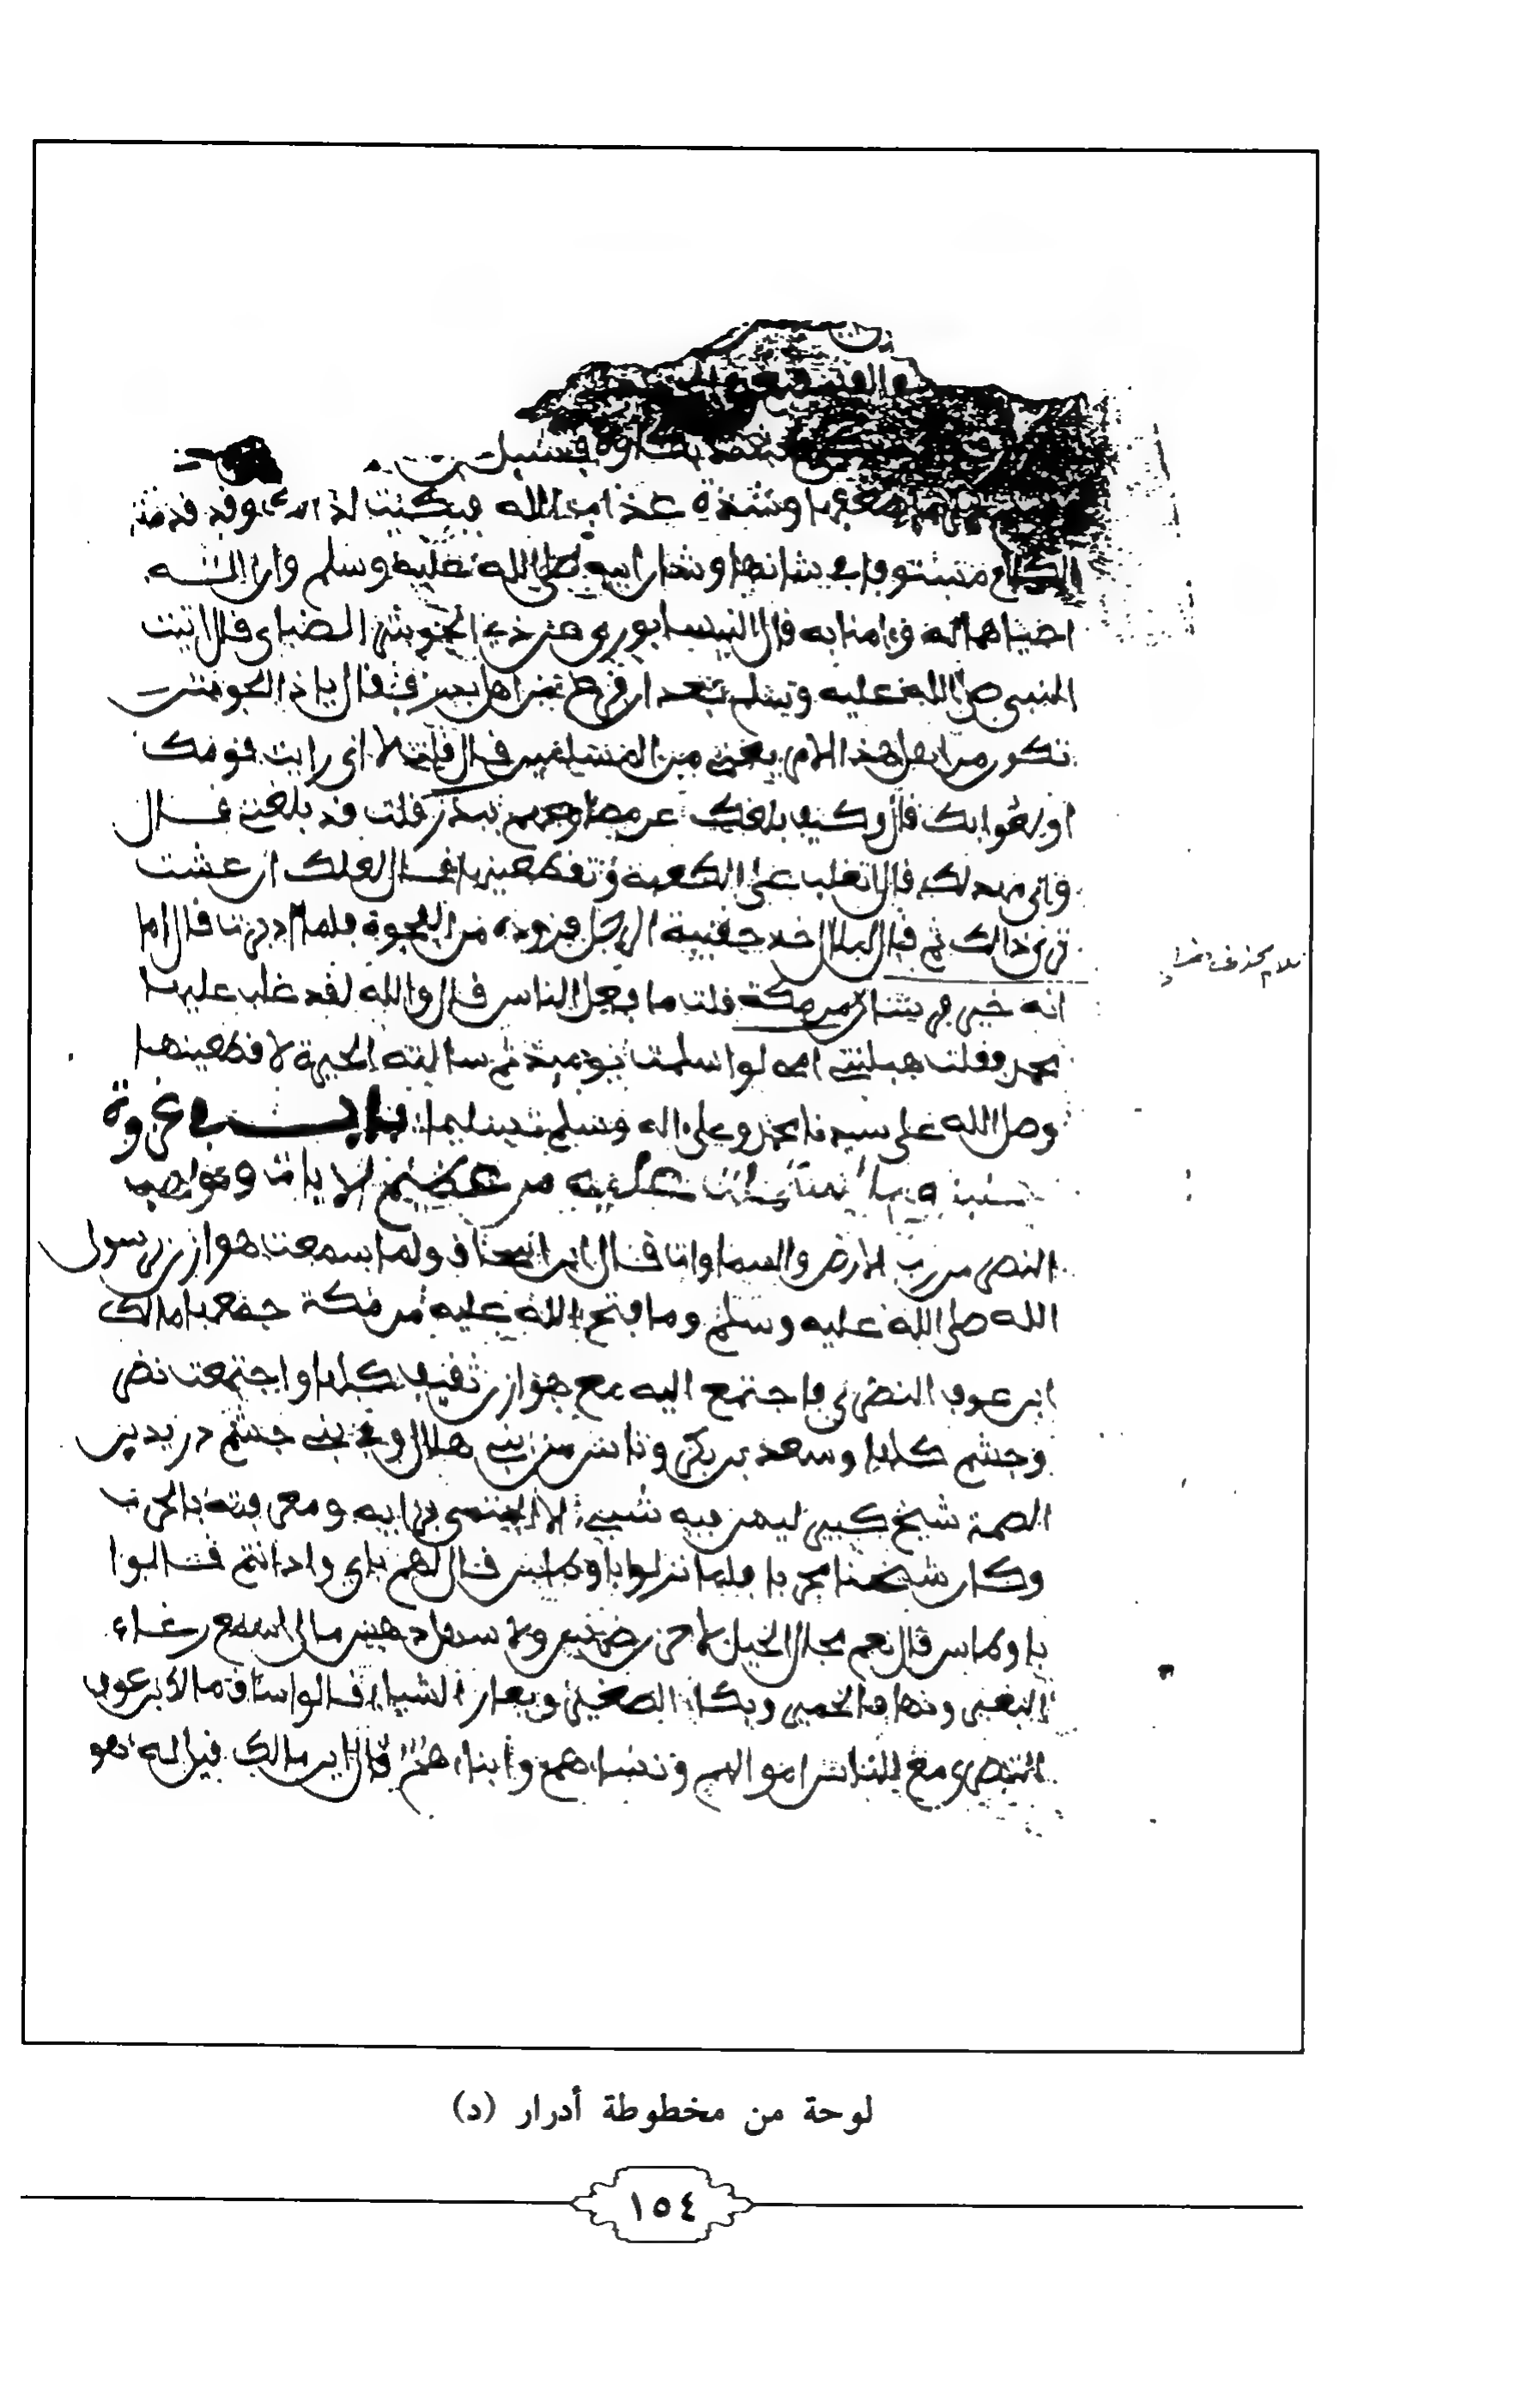 وشدة عذاب الله فبكيت لذلك وقد قدمنا
الكلام مستوفا في شانها وشان ابيه صلى الله عليه وسلم وان الله
احياهما له فامنا به قال النيسابوري عن ذي الجوشن الضبابي قال اتيت
النبي صلى الله عليه وسلم بعد ان فرغ من اهل بدر فقال يا ذا الجوشن
تكون من اهل هذا الامر يعني من المسلمين قال قلت لا اني رايت قومك
اولعوا بك قال وكيف بلغك عن مصارعهم ببدر قلت قد بلغني قال
فاني نهد لك قال ان تغلب على الكعبة وتقطنها قال لعلك ان عشت
ترى ذالك ثم قال يا بلال خذ حقيبة الرجل فزوده من العجوة فلما ادبرت قال اما
انه خير فرسان من مكة قلت ما فعل الناس قال والله لقد غلب عليها
محمد فقلت هبلتني امي لو اسلمت يومئذ ثم سالته الحيرة لاقطعنيها
وصلى الله على سيدنا محمد وعلى اله وسلم تسليما باب غزوة
عليه من عظيم الايات ومواهب
النصر من رب الارض والسماوات قال ابن اسحاق ولما سمعت هوازن برسول
الله صلى الله عليه وسلم وما فتح الله عليه من مكة جمعها مالك
ابن عوف النصري فاجتمع اليه مع هوازن ثقيف كلها واجتمعت نصر
وجشم كلها وسعد بن بكر وناس من بني هلال وفي بني جشم دريد بن
الصمة شيخ كبير ليس فيه شيء الا التيمن برايه ومعرفته بالحرب
وكان شيخا مجربا فلما نزلوا باوطاس قال لهم باي واد انتم قالوا
باوطاس قال نعم مجال الخيل لا حزن ضرس ولا سهل دهس مالي اسمع رغاء
البعير ونهاق الحمير وبكاء الصغير ويعار الشاء قالوا ساق مالك بن عوف
النصري مع الناس اموالهم ونساءهم وابناءهم قال اين مالك قيل له هو
لوحة من مخطوطة أدرار (د)
١٥٤